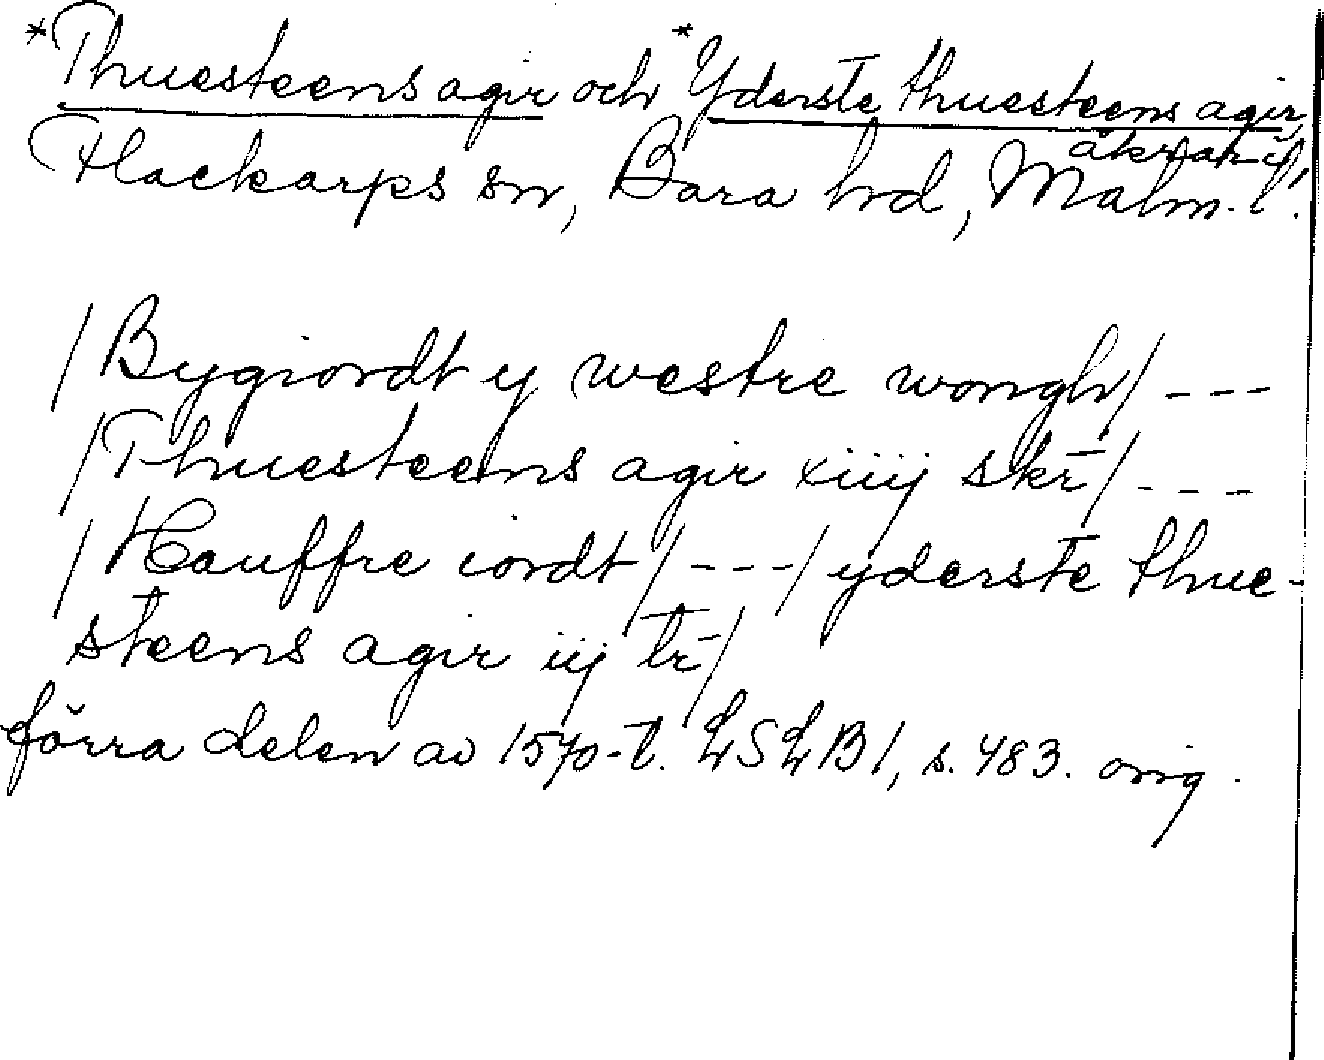 *Thuesteens agir och *Yderste thuesteens agir,
åkrar i
Flackarps sn, Bara hd, Malm. l.
/Bygiordt y westre wongh/ ---
/Thuesteens agir xiiij skr̄/ ---
/Hauffre iordt/ ---/ yderste thue-
steens agir iij tr̄/
förra delen av 1570-t. LSLB1, s. 483. orig.